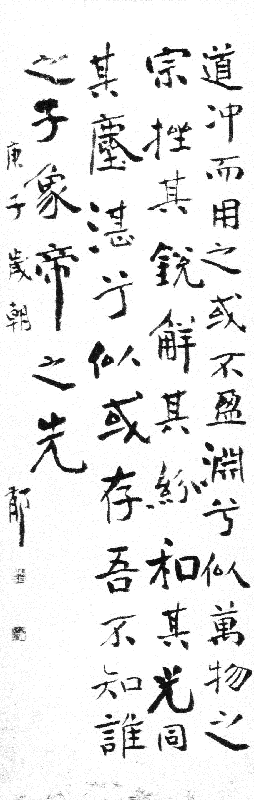 道冲而用之或不盈淵兮似萬物之
宗挫其銳解其紛和其光同
其塵湛兮似或存吾不知誰
之子象帝之先
庚子歲朝